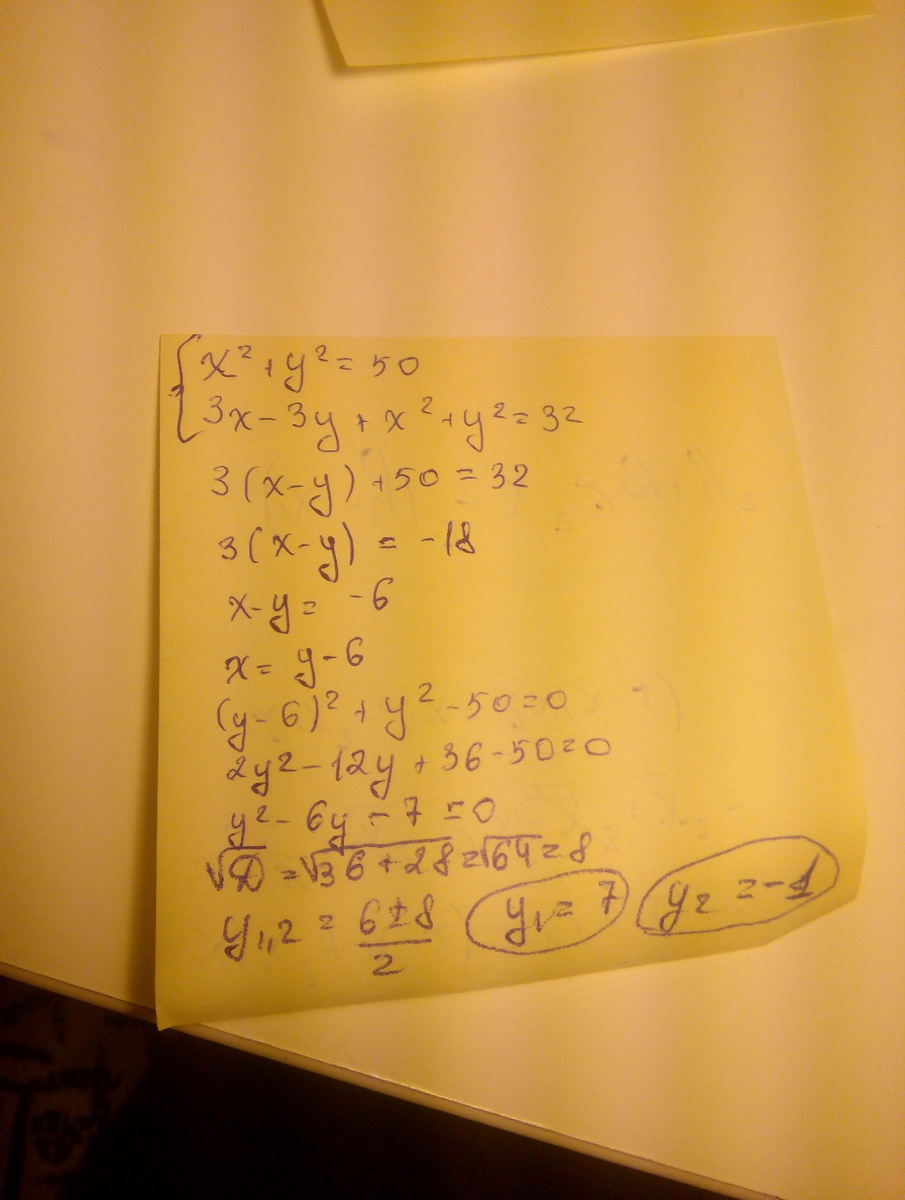 { x² + y² = 50
3x - 3y + x² + y² = 32
3(x-y) + 50 = 32
3(x-y) = -18
x-y = -6
x = y-6
(y-6)² + y² - 50 = 0
2y² - 12y + 36 - 50 = 0
y² - 6y - 7 = 0
√D = √36+28 = √64 = 8
y₁,₂ = (6±8)/2 y₁ = 7 y₂ = -1